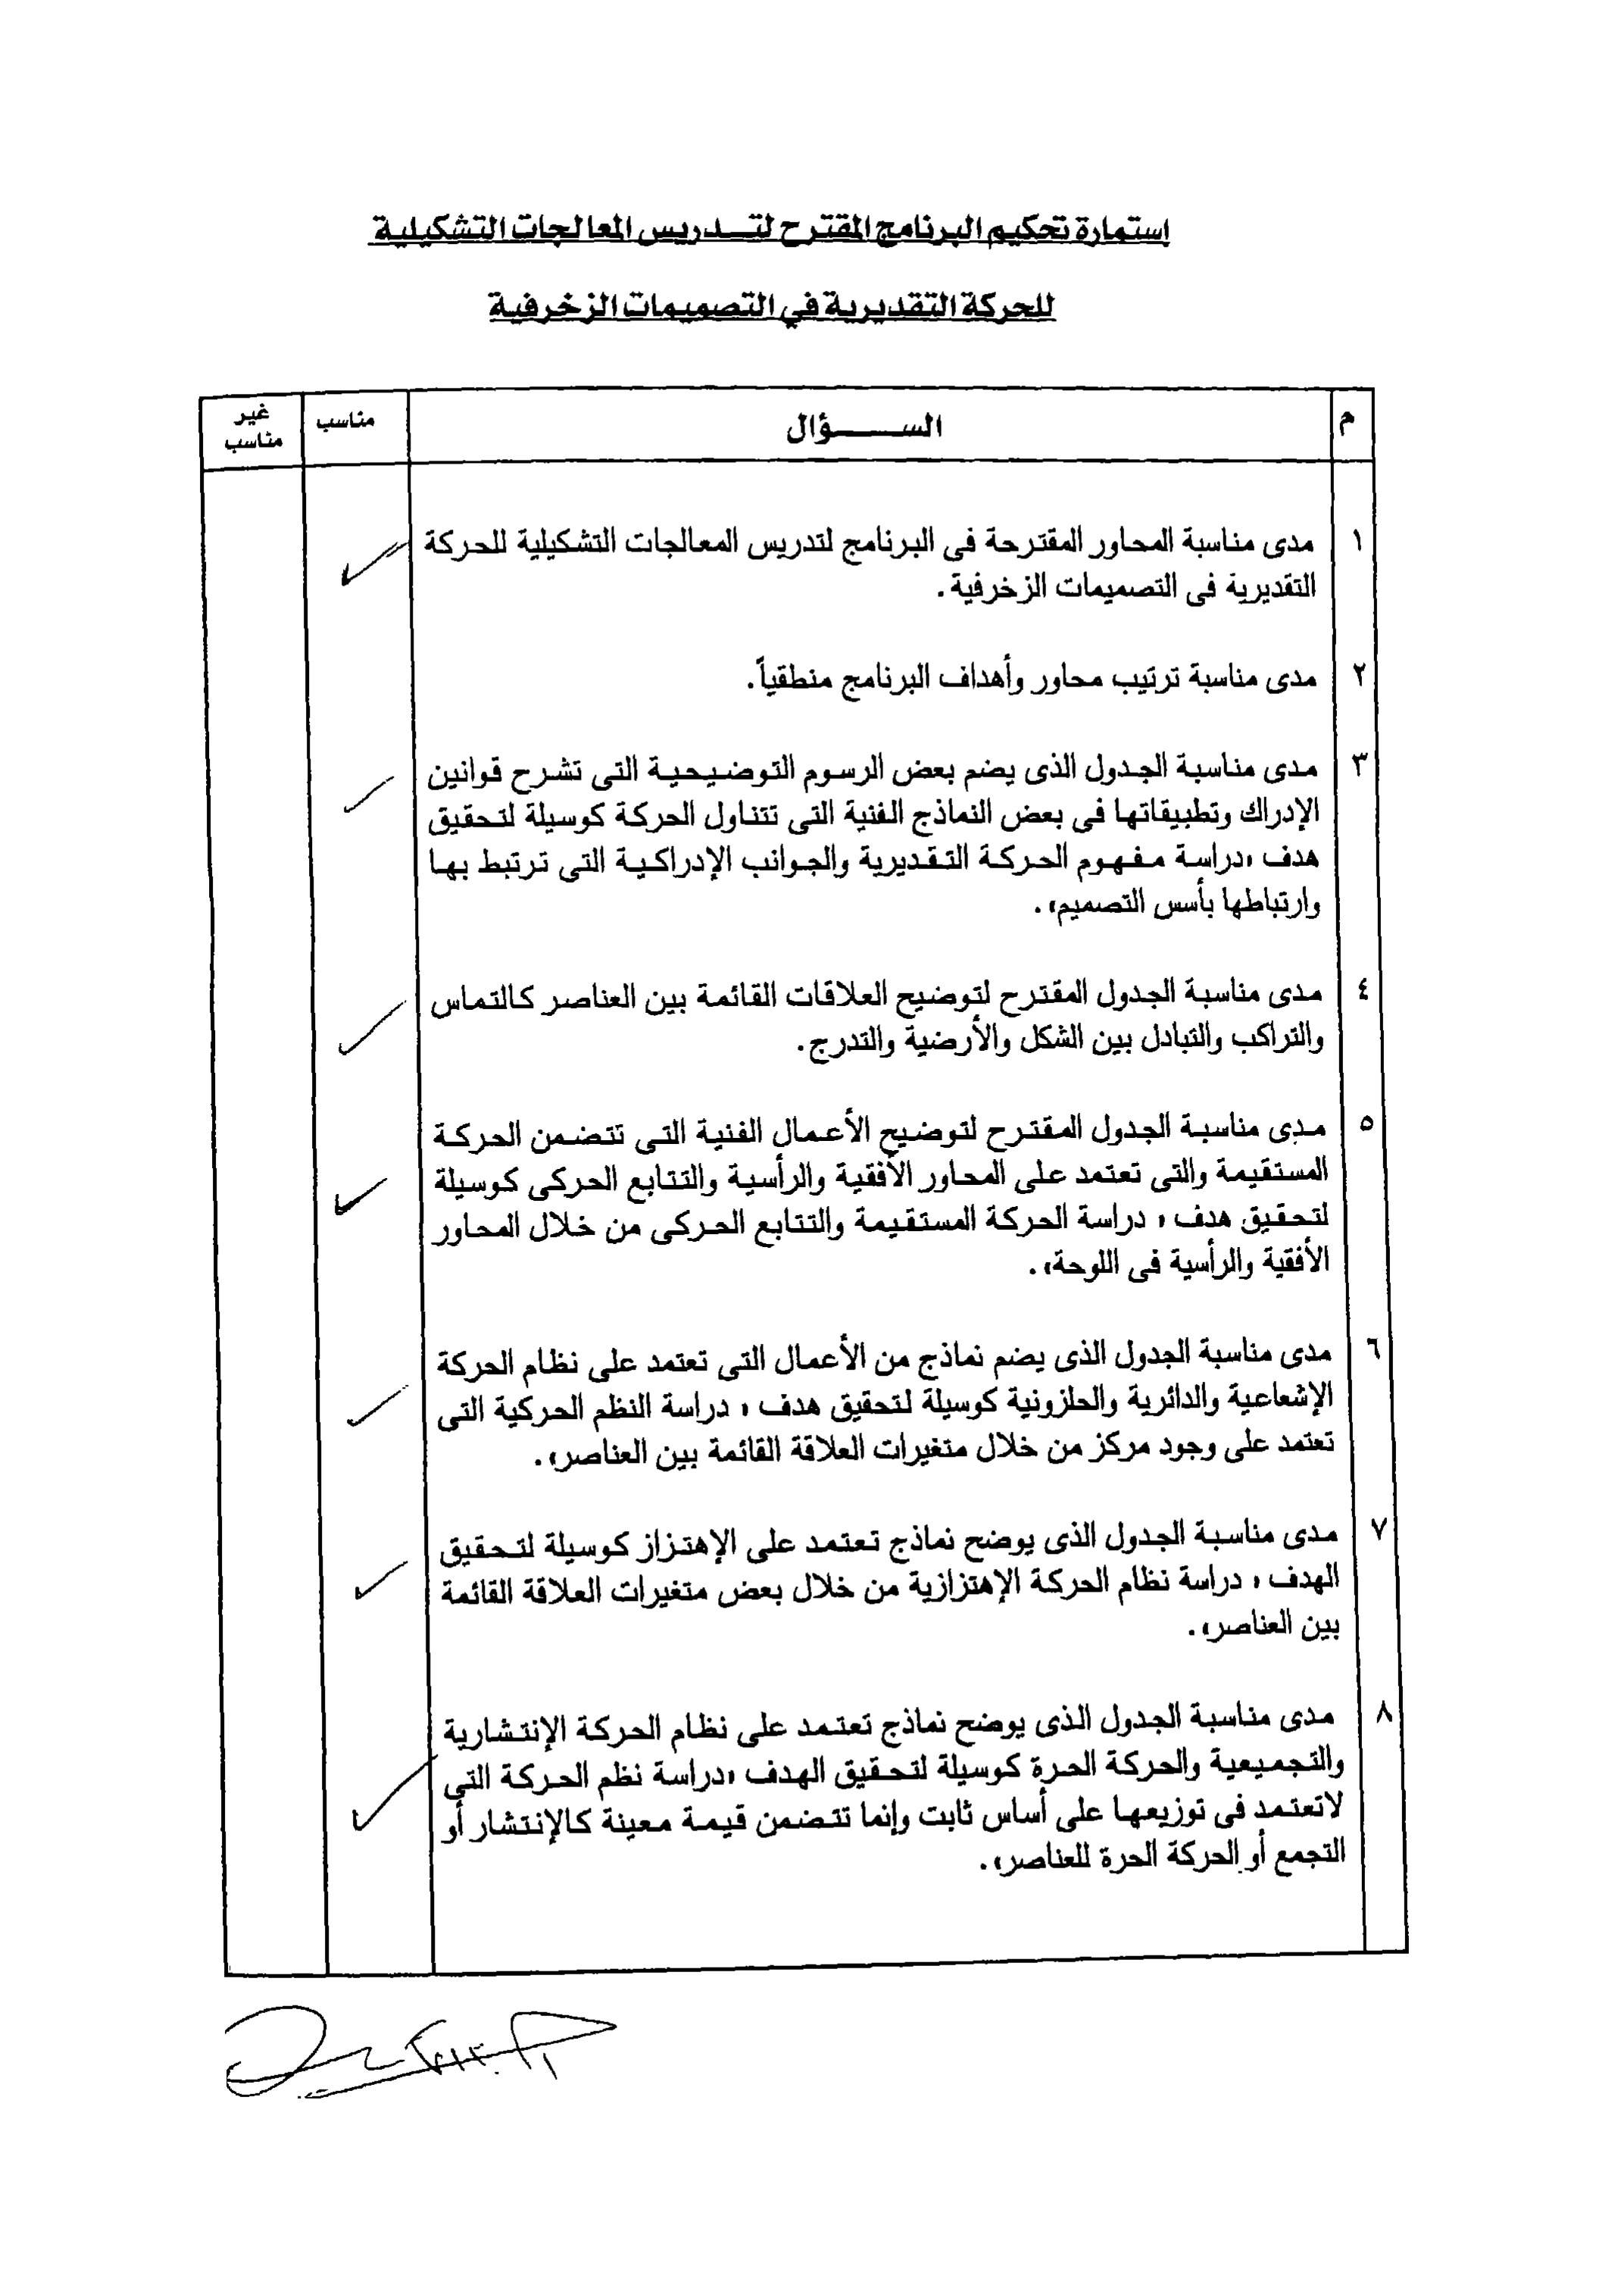 إستمارة تحكيم البرنامج المقترح لتـــدريس المعالجات التشكيلية
للحركة التقديرية في التصميمات الزخرفية
م السـؤال مناسب غير مناسب
١ مدى مناسبة المحاور المقترحة فى البرنامج لتدريس المعالجات التشكيلية للحركة ✓
التقديرية فى التصميمات الزخرفية.
٢ مدى مناسبة ترتيب محاور وأهداف البرنامج منطقياً.
٣ مدى مناسبة الجدول الذى يضم بعض الرسوم التوضيحية التى تشرح قوانين ✓
الإدراك وتطبيقاتها فى بعض النماذج الفنية التى تتناول الحركة كوسيلة لتحقيق
هدف «دراسة مفهوم الحركة التقديرية والجوانب الإدراكية التى ترتبط بها
وارتباطها بأسس التصميم».
٤ مدى مناسبة الجدول المقترح لتوضيح العلاقات القائمة بين العناصر كالتماس ✓
والتراكب والتبادل بين الشكل والأرضية والتدرج.
٥ مدى مناسبة الجدول المقترح لتوضيح الأعمال الفنية التى تتضمن الحركة ✓
المستقيمة والتى تعتمد على المحاور الأفقية والرأسية والتتابع الحركى كوسيلة
لتحقيق هدف « دراسة الحركة المستقيمة والتتابع الحركى من خلال المحاور
الأفقية والرأسية فى اللوحة».
٦ مدى مناسبة الجدول الذى يضم نماذج من الأعمال التى تعتمد على نظام الحركة ✓
الإشعاعية والدائرية والحلزونية كوسيلة لتحقيق هدف « دراسة النظم الحركية التى
تعتمد على وجود مركز من خلال متغيرات العلاقة القائمة بين العناصر».
٧ مدى مناسبة الجدول الذى يوضح نماذج تعتمد على الإهتزاز كوسيلة لتحقيق ✓
الهدف « دراسة نظام الحركة الإهتزازية من خلال بعض متغيرات العلاقة القائمة
بين العناصر».
٨ مدى مناسبة الجدول الذى يوضح نماذج تعتمد على نظام الحركة الإنتشارية ✓
والتجميعية والحركة الحرة كوسيلة لتحقيق الهدف «دراسة نظم الحركة التى
لاتعتمد فى توزيعها على أساس ثابت وإنما تتضمن قيمة معينة كالإنتشار أو
التجمع أو الحركة الحرة للعناصر».